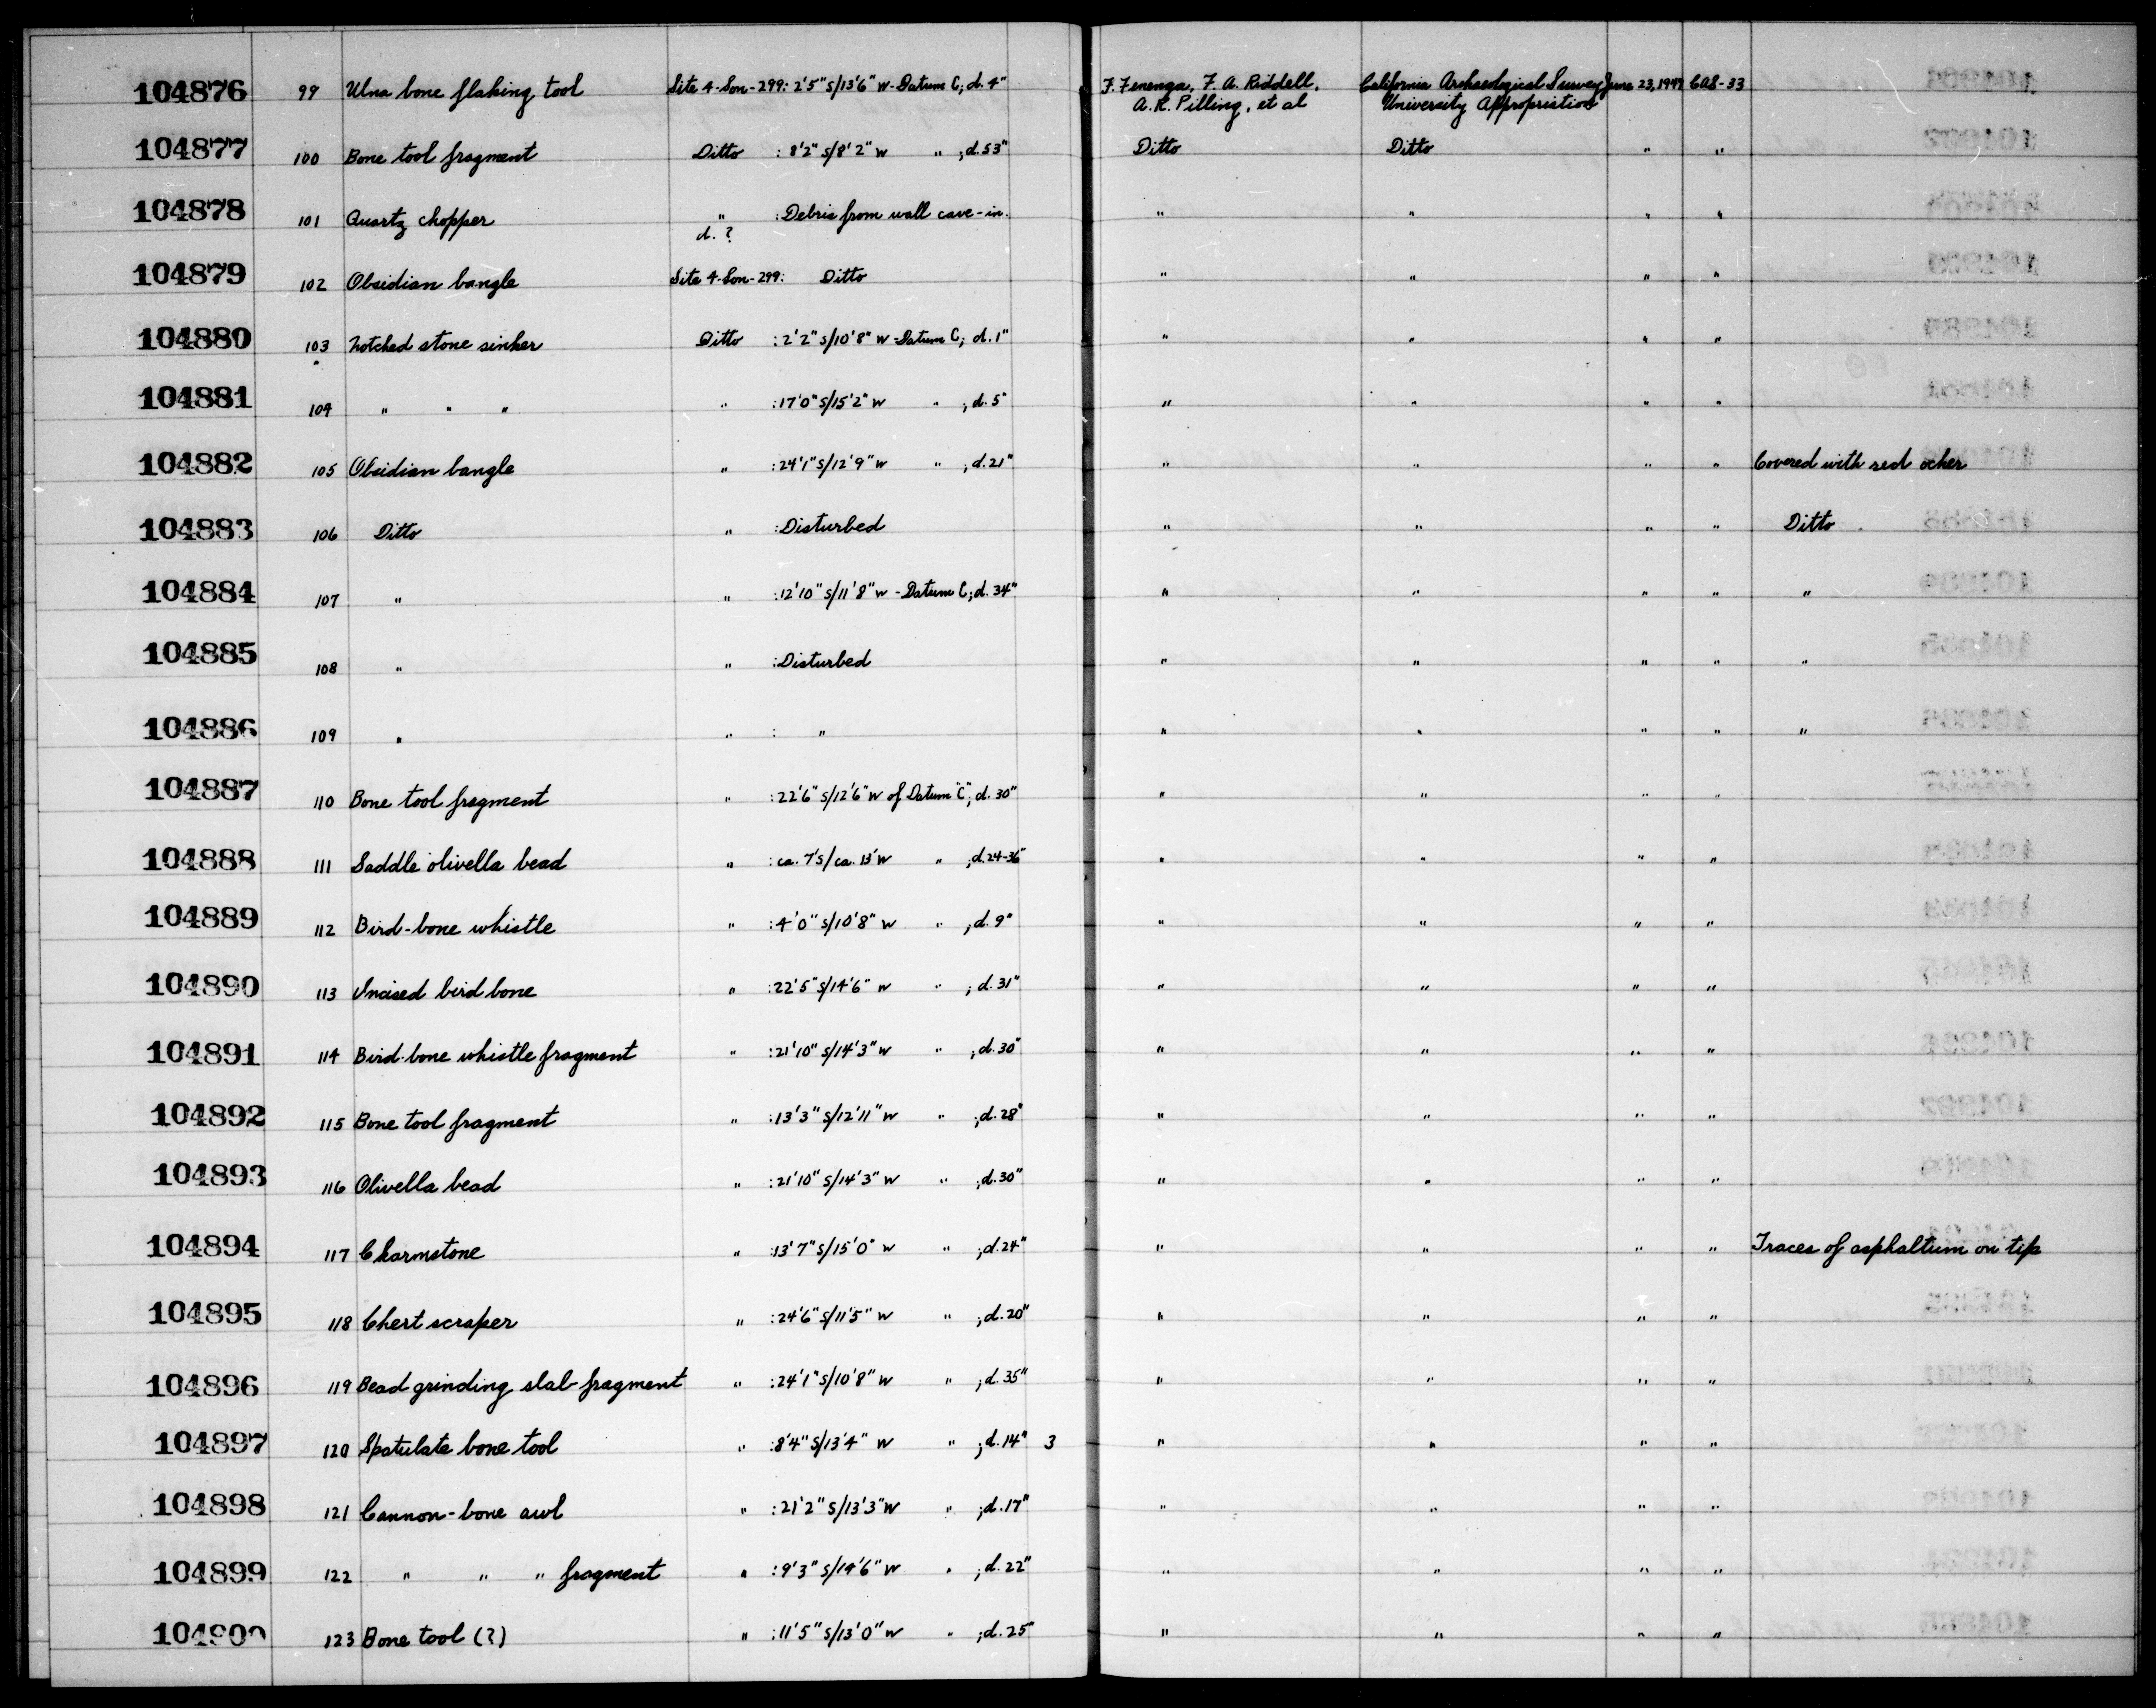 104876 99 Ulna bone flaking tool Site 4-Son-299: 2'5" S/13'6" W-Datum C; d. 4" F. Fenenga, F. A. Riddell, California Archaeological Survey June 23, 1949 CAS-33
A. R. Pilling, et al University Appropriation
104877 100 Bone tool fragment Ditto : 8'2" S/8'2" W " ; d. 53" Ditto Ditto " "
104878 101 Quartz chopper " : Debris from wall cave-in. " " " "
d. ?
104879 102 Obsidian bangle Site 4-Son-299: Ditto " " " "
104880 103 Notched stone sinker Ditto : 2'2" S/10'8" W-Datum C; d. 1" " " " "
104881 104 " " " " : 17'0" S/15'2" W " ; d. 5" " " " "
104882 105 Obsidian bangle " : 24'1" S/12'9" W " ; d. 21" " " " " Covered with red ocher
104883 106 Ditto " : Disturbed " " " " Ditto
104884 107 " " : 12'10" S/11'8" W - Datum C; d. 34" " " " " "
104885 108 " " : Disturbed " " " " "
104886 109 " " : " " " " " "
104887 110 Bone tool fragment " : 22'6" S/12'6" W of Datum "C"; d. 30" " " " "
104888 111 Saddle olivella bead " : ca. 7' S/ca. 13' W " ; d. 24-36" " " " "
104889 112 Bird-bone whistle " : 4'0" S/10'8" W " ; d. 9" " " " "
104890 113 Incised bird bone " : 22'5" S/14'6" W " ; d. 31" " " " "
104891 114 Bird-bone whistle fragment " : 21'10" S/14'3" W " ; d. 30" " " " "
104892 115 Bone tool fragment " : 13'3" S/12'11" W " ; d. 28" " " " "
104893 116 Olivella bead " : 21'10" S/14'3" W " ; d. 30" " " " "
104894 117 Charmstone " : 13'7" S/15'0" W " ; d. 24" " " " " Traces of asphaltum on tip
104895 118 Chert scraper " : 24'6" S/11'5" W " ; d. 20" " " " "
104896 119 Bead grinding slab fragment " : 24'1" S/10'8" W " ; d. 35" " " " "
104897 120 Spatulate bone tool " : 8'4" S/13'4" W " ; d. 14" 3 " " " "
104898 121 Cannon-bone awl " : 21'2" S/13'3" W " ; d. 17" " " " "
104899 122 " " " fragment " : 9'3" S/14'6" W " ; d. 22" " " " "
104900 123 Bone tool (?) " : 11'5" S/13'0" W " ; d. 25" " " " "